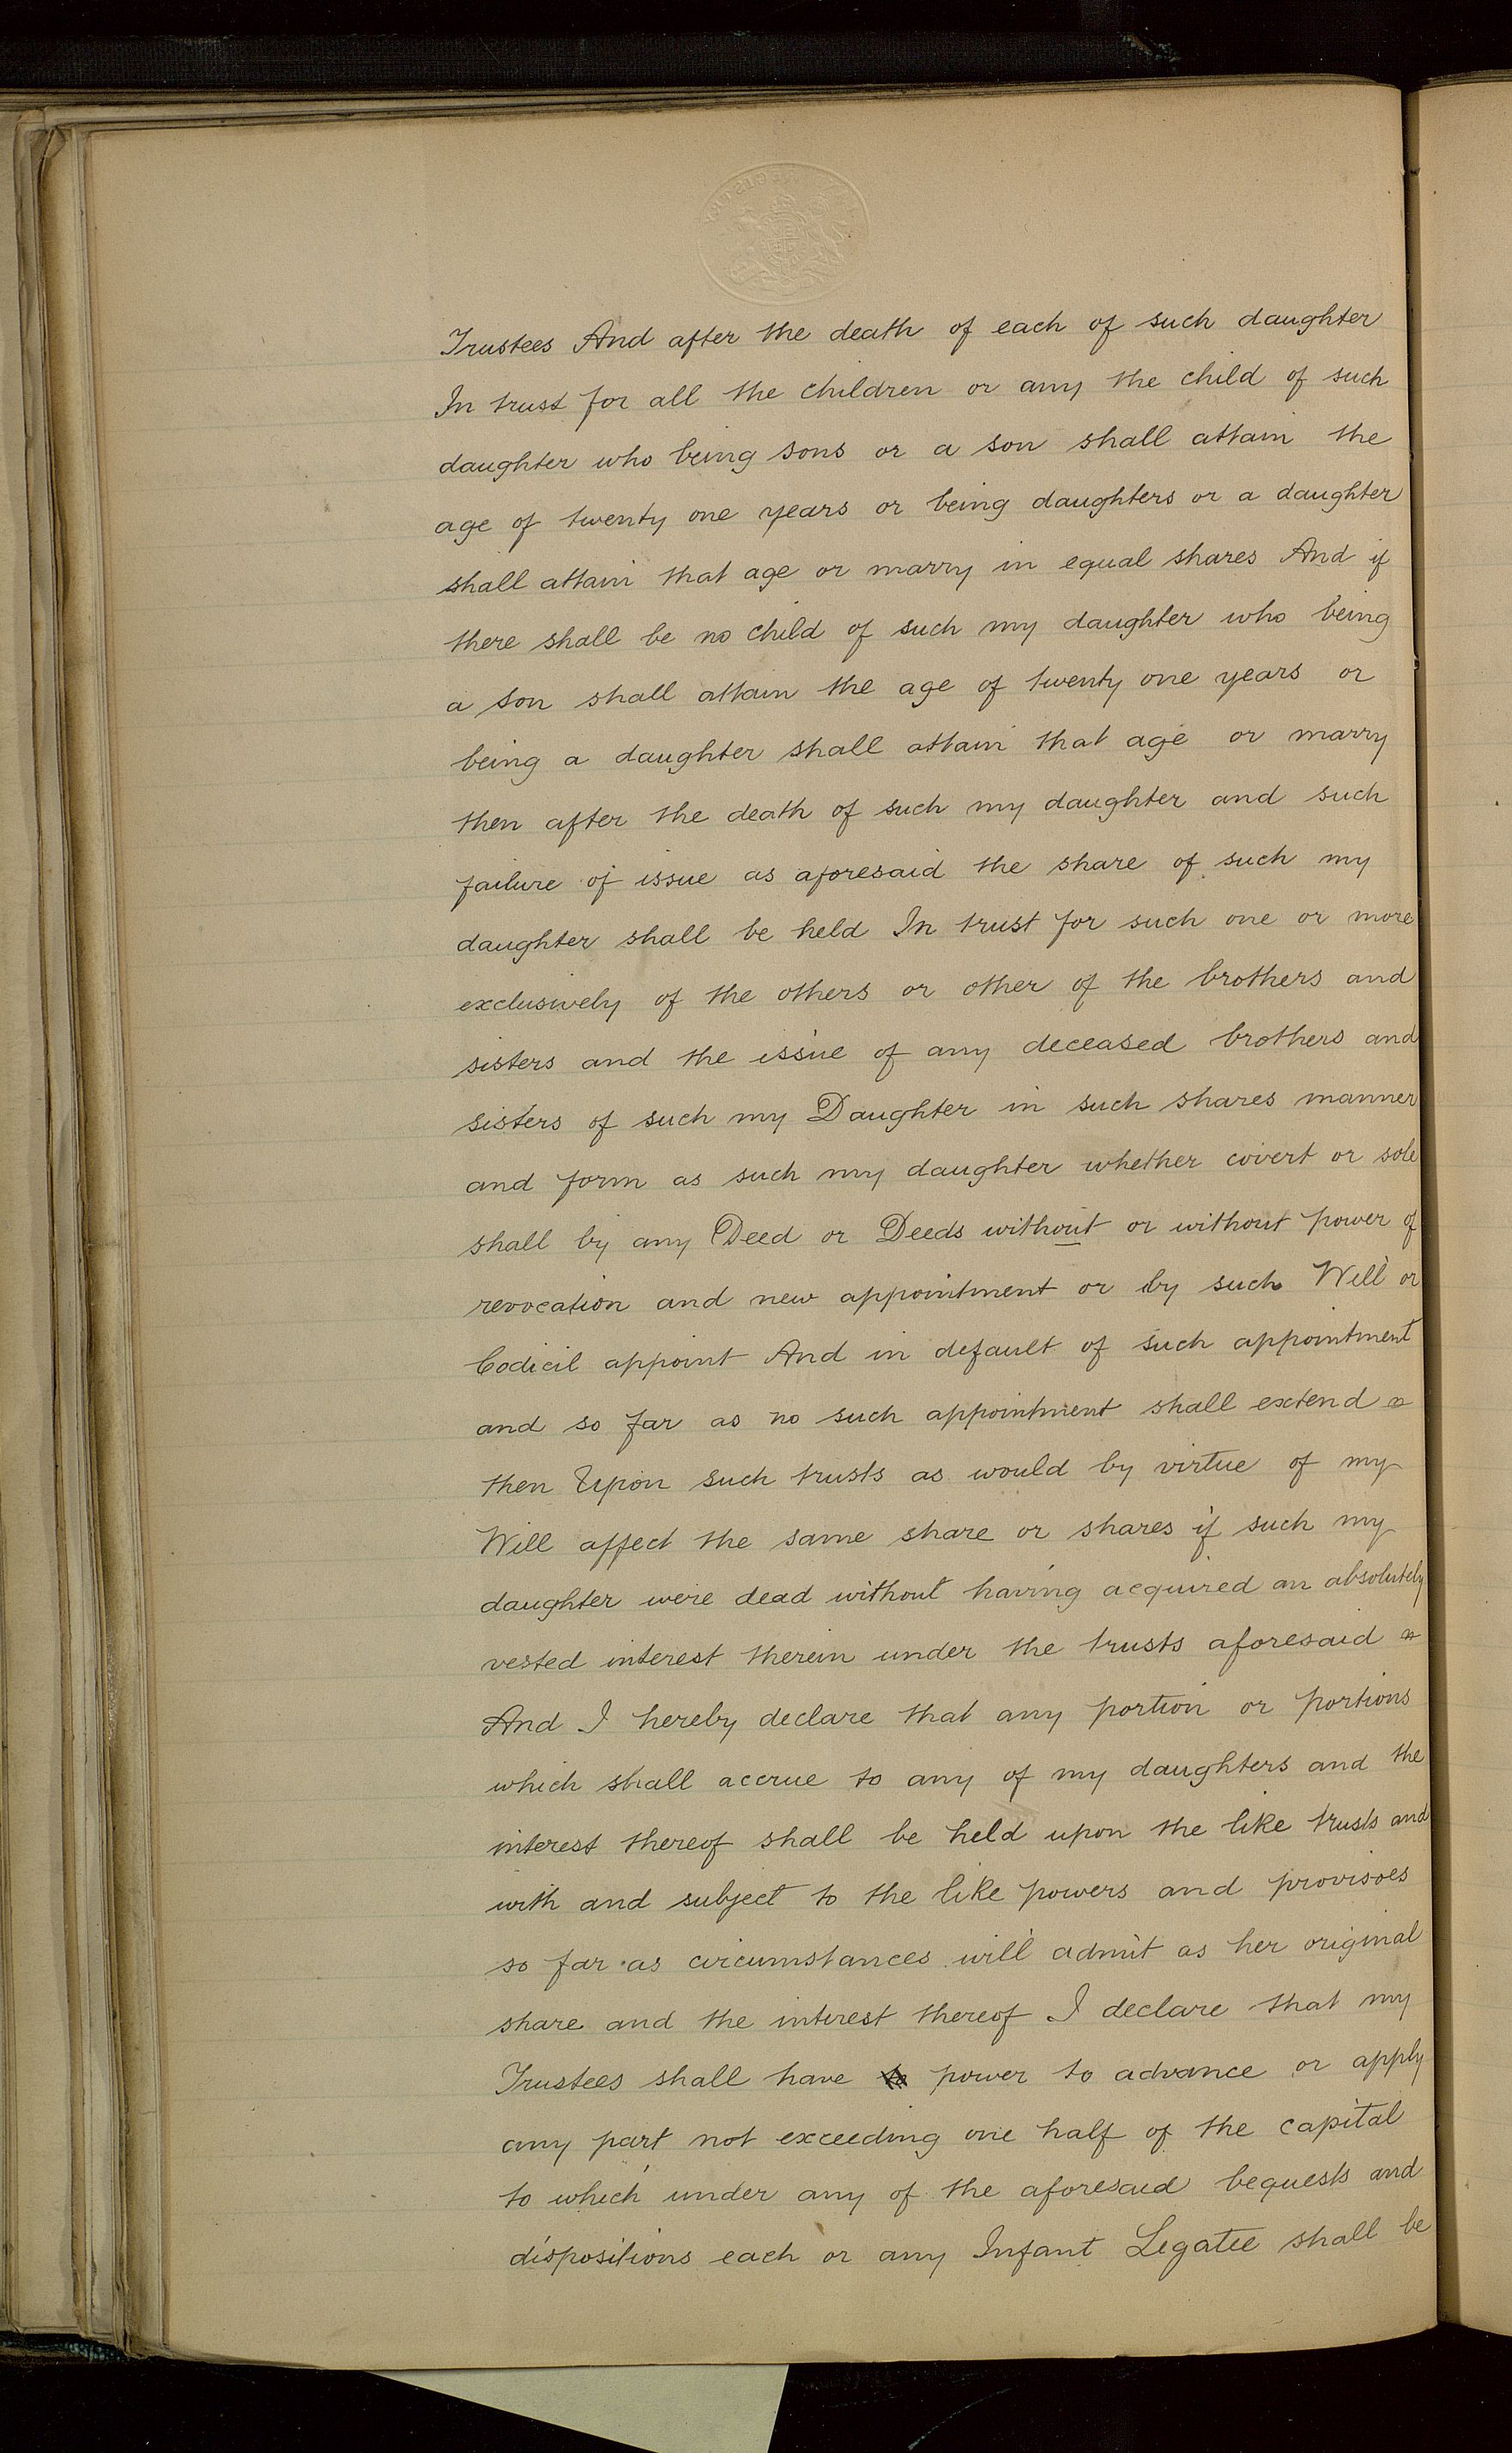 Trustees And after the death of each of such daughter
In trust for all the children or any the child of such
daughter who being sons or a son shall attain the
age of twenty one years or being daughters or a daughter
shall attain that age or marry in equal shares And if
there shall be no child of such my daughter who being
a son shall attain the age of twenty one years or
being a daughter shall attain that age or marry
then after the death of such my daughter and such
failure of issue as aforesaid the share of such my
daughter shall be held In trust for such one or more
exclusively of the others or other of the brothers and
sisters and the issue of any deceased brothers and
sisters of such my Daughter in such shares manner
and form as such my daughter whether covert or sole
shall by any Deed or Deeds without or without power of
revocation and new appointment or by such Will or
Codicil appoint And in default of such appointment
and so far as no such appointment shall extend
then Upon such trusts as would by virtue of my
Will affect the same share or shares if such my
daughter were dead without having acquired an absolutely
vested interest therein under the trusts aforesaid
And I hereby declare that any portion or portions
which shall accrue to any of my daughters and the
interest thereof shall be held upon the like trusts and
with and subject to the like powers and provisoes
so far as circumstances will admit as her original
share and the interest thereof I declare that my
Trustees shall have power to advance or apply
any part not exceeding one half of the capital
to which under any of the aforesaid bequests and
dispositions each or any Infant Legatee shall be